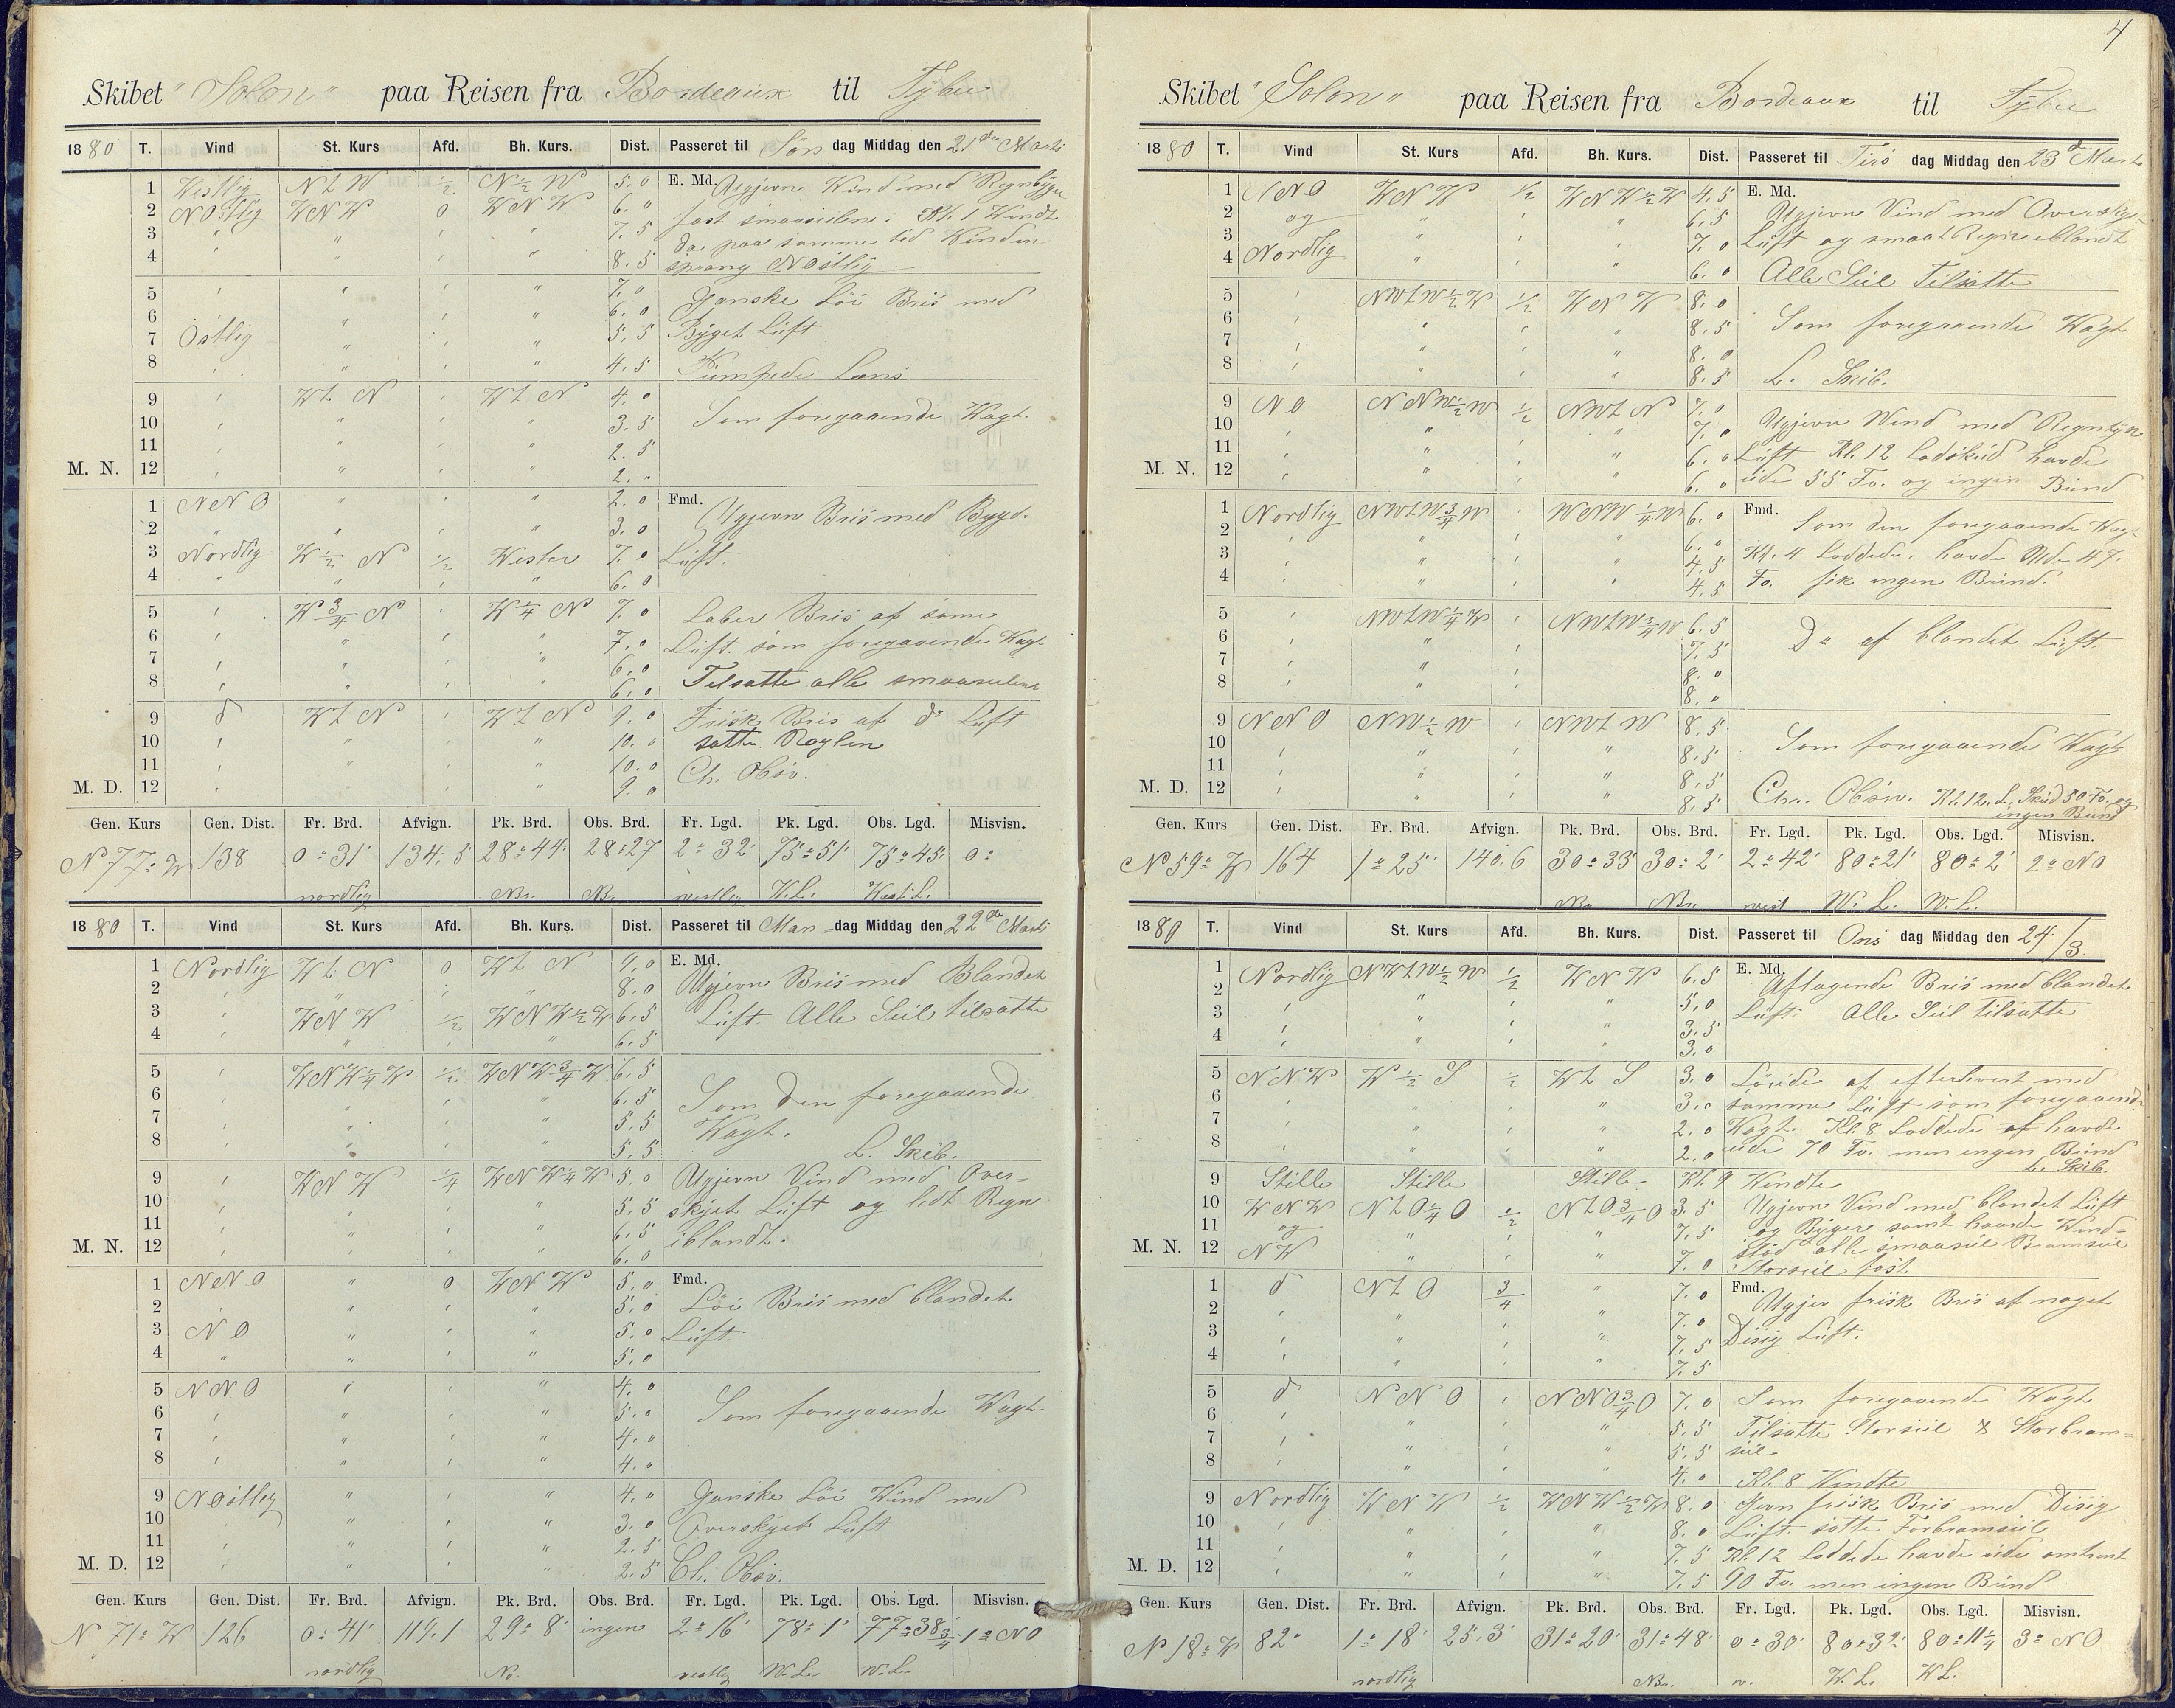 4
Skibet "Solon" paa Reisen fra Bordeaux til Tybee
1880 T. Vind St. Kurs Afd. Bh. Kurs. Dist. Passeret til Søn dag Middag den 21de Marts
1 Vestlig N t W 1/2 N 1/2 W 5.0 E. Md. Ugjevn Wind med Regnbyger
2 NOstlig WNW 0 WNW 6.0 fast smaaseilene. Kl. 1 Wendt
3 " " " " 7.5 da paa samme tid Winden
4 " " " " 8.5 sprang NOstlig
5 " " " " 7.0 Ganske Löi Bris med
6 " " " " 6.0 Byget Luft
7 Ostlig " " " 5.5
8 " " " " 4.5 Pumpede Læns
9 " W t N " W t N 4.0
10 " " " " 3.5 Som foregaaende Vagt.
11 " " " " 2.5
M. N. 12 " " " " 2.
1 NNO " " " 2.0 Fmd. Ugjevn Bris med Byge.
2 " " " " 3.0
3 Nordlig W 1/2 N 1/2 Wester 7.0 Luft.
4 " " " " 6.0
5 " W 3/4 N " W 1/4 N 7.0 Laber Bris af samme
6 " " " " 7.0 Luft som foregaaende Vagt
7 " " " " 6.0
8 " " " " 6.0 Tilsatte alle smaaseilene
9 d W t N " W t N 9.0 Frisk Bris af do Luft
10 " " " " 10.0 satte Røylen
11 " " " " 10.0 Ch. Obsv.
M. D. 12 " " " " 9.0
Gen. Kurs Gen. Dist. Fr. Brd. Afvign. Pk. Brd. Obs. Brd. Fr. Lgd. Pk. Lgd. Obs. Lgd. Misvisn.
N 77° W 138 0° 31' 134.5 28° 44' 28° 27 2° 32' 75° 51' 75° 45' 0°
nordlig Br. Br. vestlig W.L. West L.
1880 T. Vind St. Kurs Afd. Bh. Kurs. Dist. Passeret til Man dag Middag den 22de Marts
1 Nordlig W t N 0 W t N 9.0 E. Md.
2 " " " " 8.0 Ugjevn Bris med Blandet
3 " WNW 1/2 WNW 1/2 W 6.5 Luft. Alle Seil tilsatte
4 " " " " 6.5
5 " WNW 1/4 W 1/2 WNW 3/4 W 6.5
6 " " " " 6.5 Som den foregaaende
7 " " " " 5.5 Vagt.
8 " " " " 5.5 L. Skib.
9 " WNW 1/4 WNW 1/4 W 5.0 Ugjevn Vind med Over-
10 " " " " 5.5 skyet Luft og lidt Regn
11 " " " " 6.5 iblandt.
M. N. 12 " " " " 6.0
1 NNO " 0 WNW 5.0 Fmd.
2 " " " " 5.0 Löi Bris med blandet
3 NO " " " 5.0 Luft.
4 " " " " 5.0
5 NNO " " " 4.0
6 " " " " 5.0 Som foregaaende Vagt.
7 " " " " 4.0
8 " " " " 4.0
9 NOstlig " " " 4.0 Ganske Löi Wind med
10 " " " " 3.0 Overskyet Luft
11 " " " " 2.5
M. D. 12 " " " " 2.5 Ch. Obsv.
Gen. Kurs Gen. Dist. Fr. Brd. Afvign. Pk. Brd. Obs. Brd. Fr. Lgd. Pk. Lgd. Obs. Lgd. Misvisn.
N 71° W 126 0° 41' 119.1 29° 8' ingen 2° 16' 78° 1' 77° 38 3/4' 1° NO
nordlig Br. vestlig W.L. W.L.
Skibet "Solon" paa Reisen fra Bordeaux til Tybee
1880 T. Vind St. Kurs Afd. Bh. Kurs. Dist. Passeret til Tirs dag Middag den 23de Marts
1 NNO WNW 1/2 WNW 1/2 W 4.5 E. Md.
2 og " " " 6.5 Ugjevn Vind med Overskyet
3 " " " 7.0 Luft og smaat Regn iblandt
4 Nordlig " " " 6.0 Alle Seil Tilsatte
5 " NW t W 1/2 W 1/2 WNW 8.0
6 " " " " 8.5 Som foregaaende Vagt
7 " " " " 8.0
8 " " " " 8.5 L. Skib.
9 NO NNW 1/2 W 1/2 NW t N 7.0
10 " " " " 7.0 Ugjevn Wind med Regntyk
11 " " " " 6.0 Luft Kl. 12 Lodskud havde
M. N. 12 " " " " 6.0 ude 55 Fv. og ingen Bund
1 Nordlig NW t W 3/4 W " WNW 1/4 W 6.0 Fmd.
2 " " " " 6.0 Som den foregaaende Vagt
3 " " " " 4.5 Kl. 4 Loddede. havde Ude 47.
4 " " " " 4.5 Fv. fik ingen Bund.
5 " NW t W 1/4 W " NW t W 3/4 W 6.5
6 " " " " 7.5 Do af blandet Luft.
7 " " " " 8.0
8 " " " " 8.0
9 NNO NW 1/2 W " NW t W 8.5
10 " " " " 8.5 Som foregaaende Vagt
11 " " " " 8.5
M. D. 12 " " " " 8.5 Chr. Obsv. Kl. 12. L. Skud 50 Fv. og
ingen Bund
Gen. Kurs Gen. Dist. Fr. Brd. Afvign. Pk. Brd. Obs. Brd. Fr. Lgd. Pk. Lgd. Obs. Lgd. Misvisn.
N 59° W 164 1° 25' 140.6 30° 33' 30° 2' 2° 42' 80° 21' 80° 2' 2° NO
Br. Br. vest W. L. W. L.
1880 T. Vind St. Kurs Afd. Bh. Kurs. Dist. Passeret til Ons dag Middag den 24/3.
1 Nordlig NW t W 1/2 W 1/2 WNW 6.5 E. Md.
2 " " " " 5.0 Aftagende Bris med blandet
3 " " " " 3.5 Luft. Alle Seil tilsatte
4 " " " " 3.0
5 NNW W 1/2 S 1/2 W t S 3.0 Löiede af efterhvert med
6 " " " " 3.0 samme Luft som foregaaende
7 " " " " 2.0 Vagt. Kl. 8 Loddede af havde
8 " " " " 2.0 ude 70 Fv. men ingen Bund
L. Skib.
9 Stille Stille Stille Kl. 9 Vendte
10 WNW N t O 1/4 O 1/2 N t O 3/4 O 3.5 Ugjevn Vind med blandet Luft
11 og " " " 7.5 og Byger samt haarde Vind-
M. N. 12 NW " " " 7.0 stöd alle smaaseil Bramseil
Storseil fast
1 d N t O 3/4 " 7.0 Fmd.
2 " " " " 7.0 Ugjev frisk Bris af noget
3 " " " " 7.5 Disig Luft.
4 " " " " 7.5
5 d NNO " NNO 3/4 O 7.0 Som foregaaende Vagt
6 " " " " 5.5 Tilsatte Storseil & Storbram-
7 " " " " 5.5 seil
8 " " " " 4.0 Kl. 8 Vendte
9 Nordlig WNW 1/2 WNW 1/2 W 8.0 Jevn frisk Bris med Disig
10 " " " " 8.0 Luft. satte Forbramseil
11 " " " " 7.5 Kl. 12 Loddede havde ude omtrent
M. D. 12 " " " " 7.5 90 Fv. men ingen Bund
Gen. Kurs Gen. Dist. Fr. Brd. Afvign. Pk. Brd. Obs. Brd. Fr. Lgd. Pk. Lgd. Obs. Lgd. Misvisn.
N 18° W 82° 1° 18' 25.3' 31° 20' 31° 48' 0° 30' 80° 32' 80° 11 1/4 3° NO
nordlig Br. v. W. L. W L.